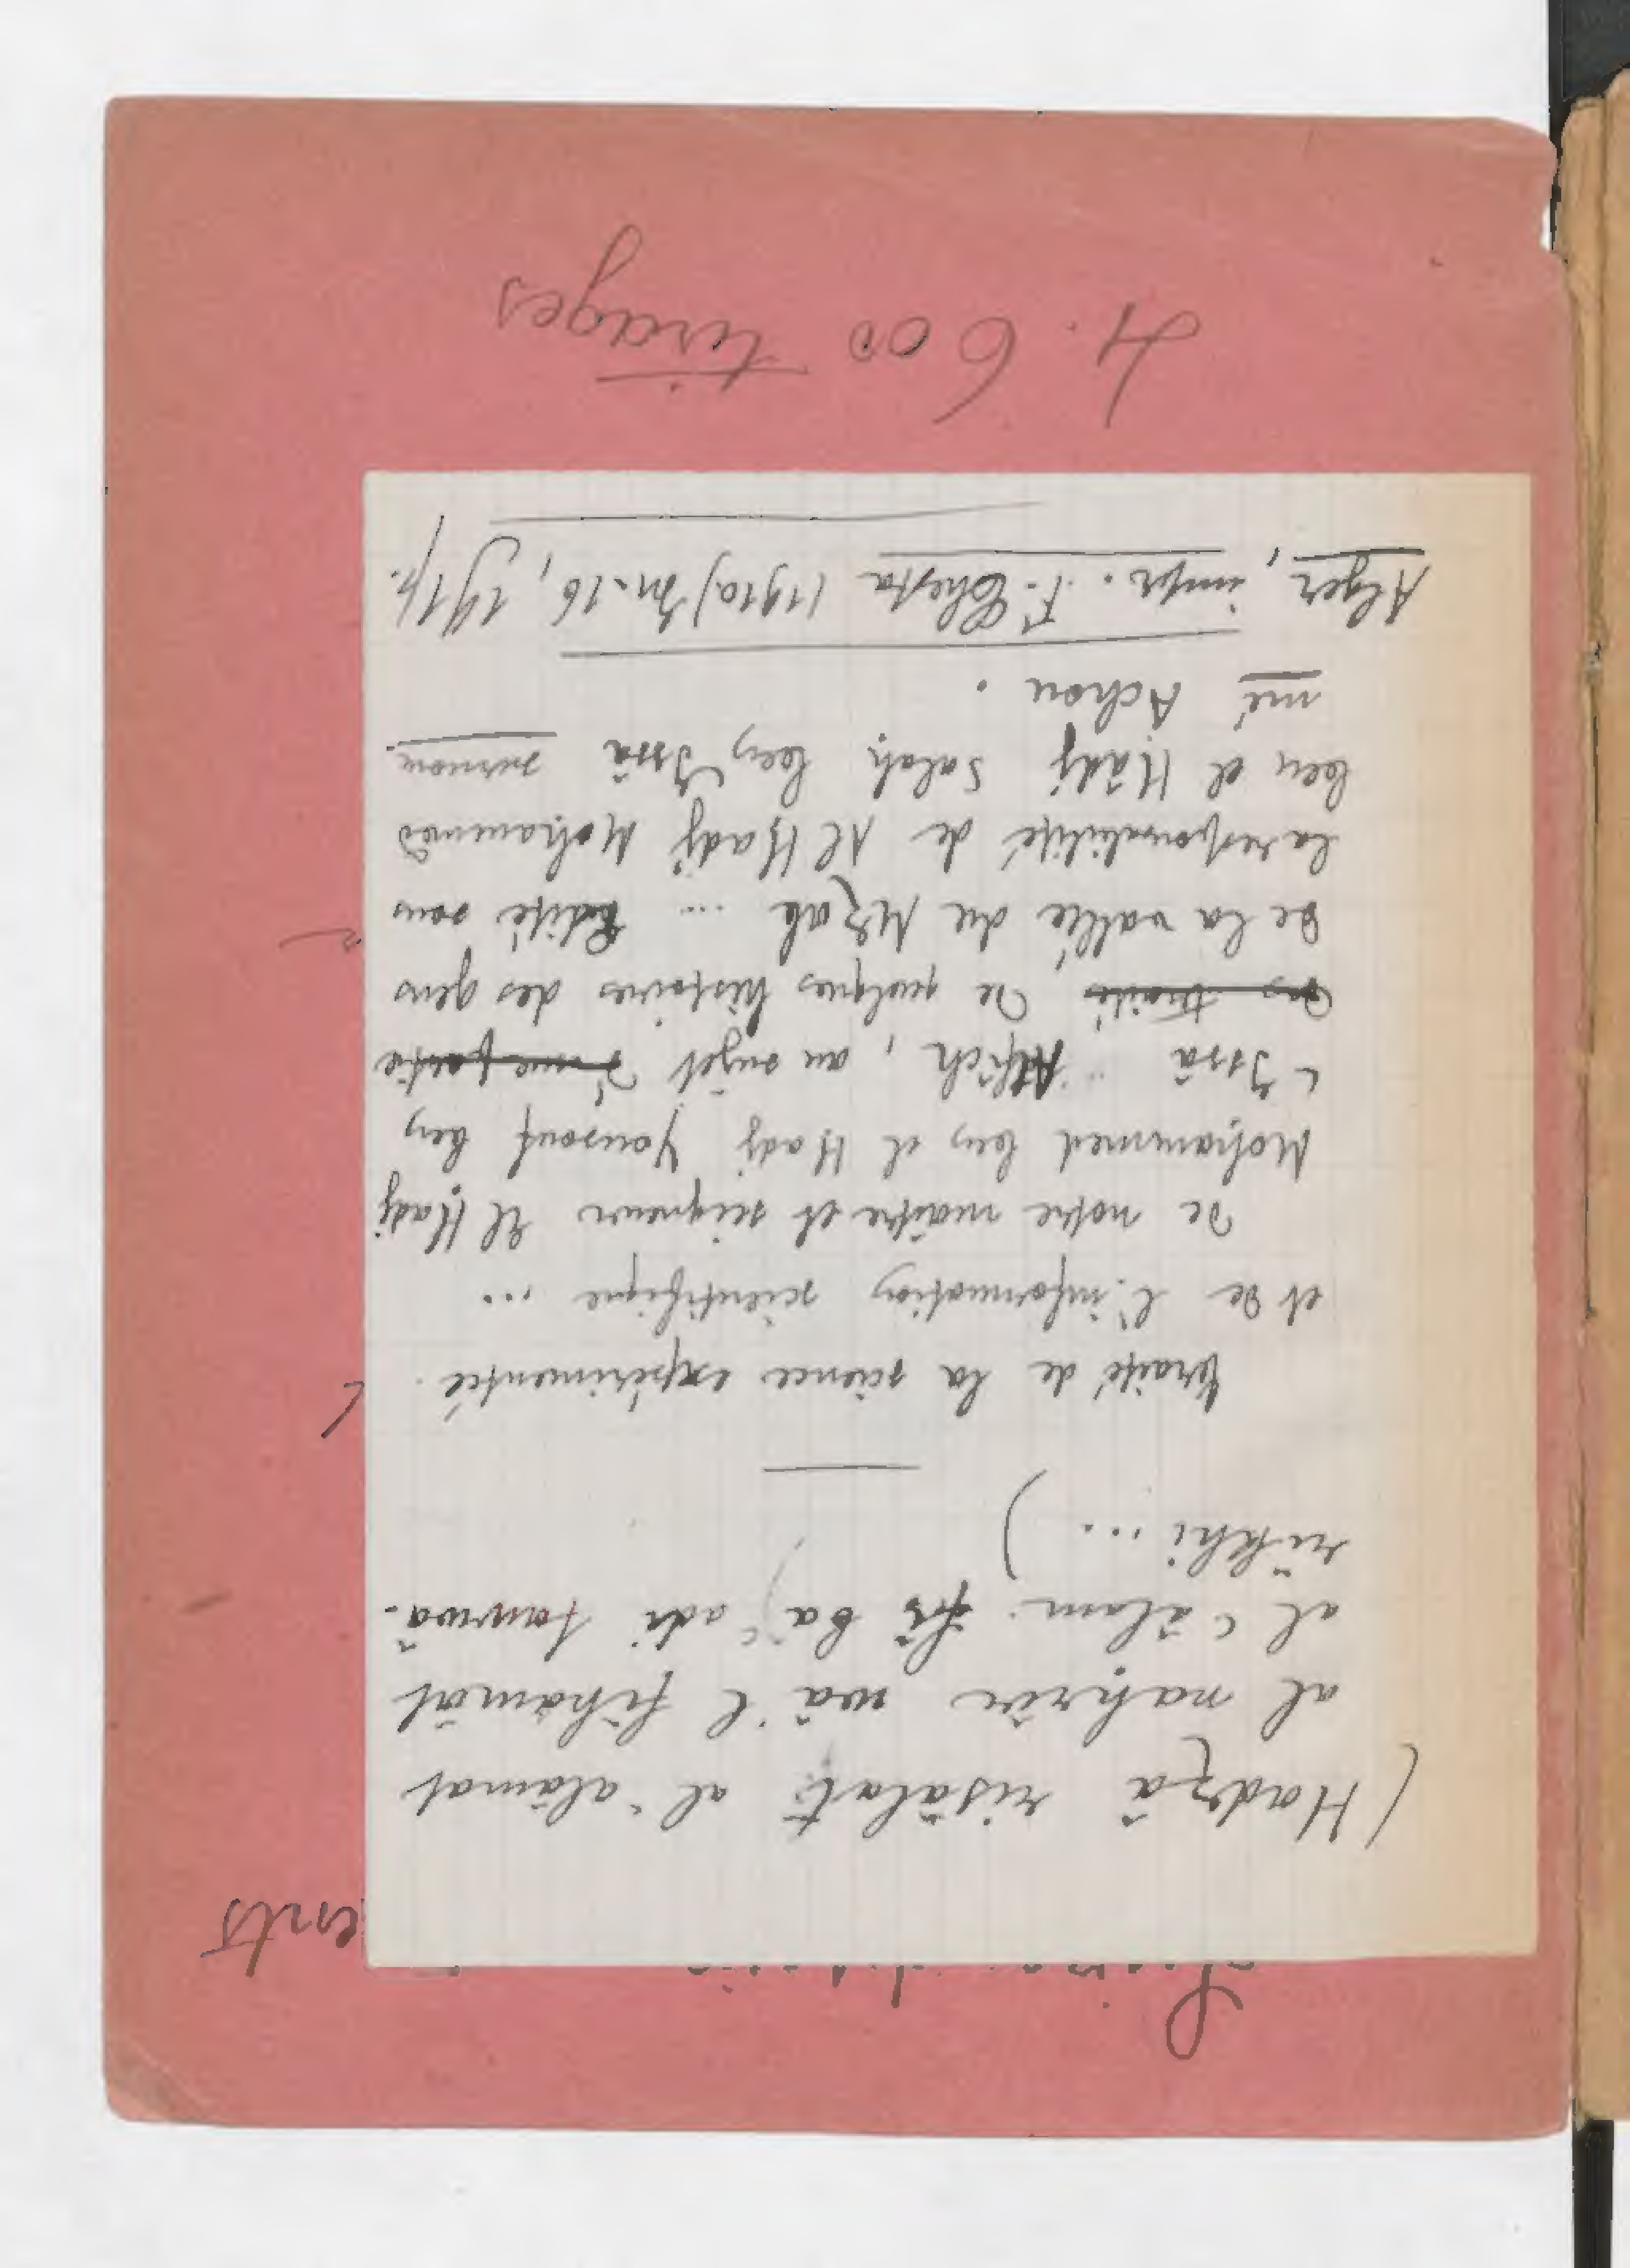 ents
(Hadzâ risâlat al ʿalâmat
al nahrîr wa'l fihâmât
al ʿâlam. fî baʿadi tawwâ-
rikhi ...)
Traité de la science expérimentée
et de l'information scientifique ...
De notre maître et seigneur El Hadj
Mohammed ben el Hadj Yousouf ben
ʿIssâ Atfich, au sujet d'une partie
des traité, De quelques histoires des gens
De la vallée du Mzab ... Edité sous
la responsabilité de Al Hadj Mohammed
ben el Hâdj Salah ben Issâ surnom-
mé Achou.
Alger, impr. F. Chesta (1910) In-16, 141 p.
4. 600 tirages